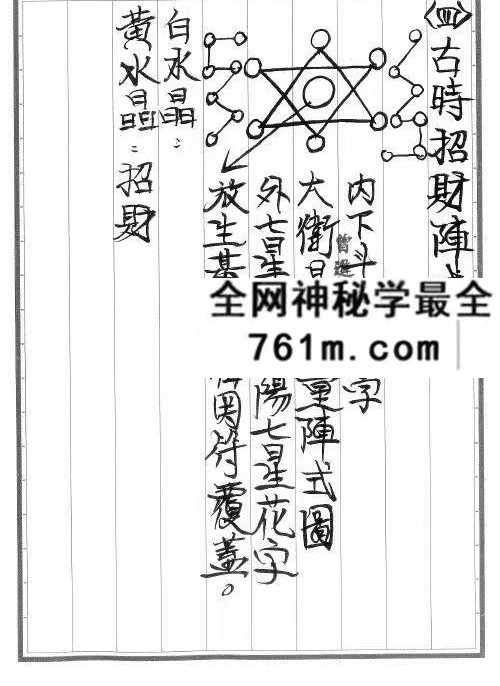 ㈣古時招財陣式
內下斗
字
大衛星
重陣式圖
外七星
陽七星花字
放生基
用符覆蓋。
白水晶：
黃水晶：招財
全网神秘学最全
761m.com